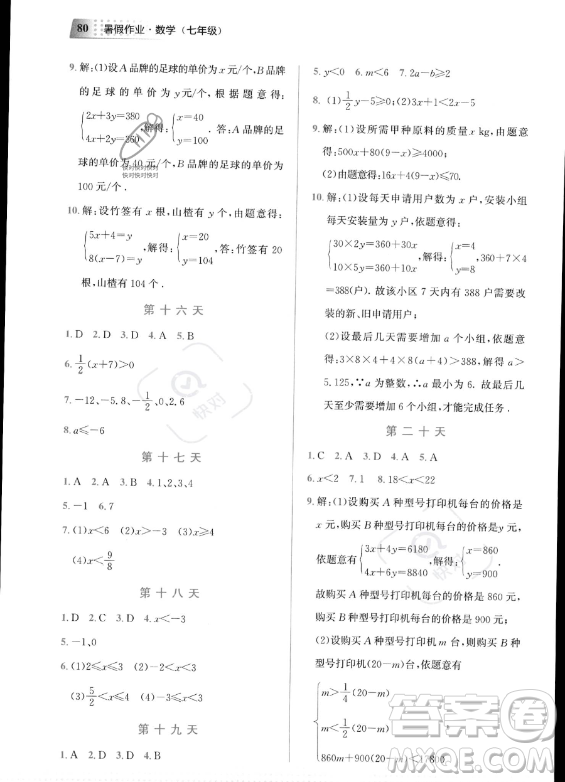 80 暑假作业·数学（七年级）
9. 解：(1)设A品牌的足球的单价为x元/个，B品牌
的足球的单价为y元/个，根据题意得：
{2x+3y=380
4x+2y=360，解得：{x=40
y=100．答：A品牌的足
球的单价为40元/个，B品牌的足球的单价为
100元/个．
快对快对快对
快对快对快对
10. 解：设竹签有x根，山楂有y个，由题意得：
{5x+4=y
8(x-7)=y，解得：{x=20
y=104，答：竹签有20
根，山楂有104个．
第十六天
1. D 2. D 3. D 4. A 5. B
6. 1/2(x+7)>0
7. -12、-5.8、-1/2、0、2.6
8. a≤-6
第十七天
1. A 2. A 3. A 4. 1、2、3、4
5. -1 6. 7
7. (1)x<6 (2)x>-3 (3)x≥4
(4)x<9/8
第十八天
1. D 2. C 3. D 4. x<-3
5. -1、0
6. (1)2≤x≤3 (2)-1<x≤3
(3)5/2<x≤4 (4)-1≤x<5
第十九天
1. A 2. D 3. D 4. B
5. y<0 6. m<6 7. 2<a<4
8. (1)1/2y-5≥0；(2)3x+1<2x-5
9. 解：(1)设所需甲种原料的质量x kg，由题意
得：500x+80(9-x)≥4000；
(2)由题意得：16x+4(9-x)≤70．
10. 解：(1)设每天申请用户数为x户，安装小组
每天安装量为y户，依题意得：
{30×2y=360+30x
10×5y=360+10x，解得：{x=4
y=8，360+7×4
=388(户)．故该小区7天内有388户需要改
装的新、旧申请用户；
(2)设最后几天需要增加a个小组，依题意
得：3×8×4+4×8(2+a)≥388，解得：a≥
5.125，∵a为整数，∴a最小为6．故最后几
天至少需要增加6个小组，才能完成任务．
第二十天
1. C 2. A 3. D 4. A 5. B
6. x<2 7. 1 8. 18<x<22
9. 解：(1)设购买A种型号打印机每台的价格是
x元，购买B种型号打印机每台的价格是y元，
依题意有{3x+4y=6180
4x+6y=8840，解得：{x=860
y=900．
故购买A种型号打印机每台的价格是860元，
购买B种型号打印机每台的价格是900元；
(2)设购买A种型号打印机m台，则购买B种
型号打印机(20-m)台，依题意有
{m>1/4(20-m)
m<1/2(20-m)
860m+900(20-m)<17800
快对
答案圈